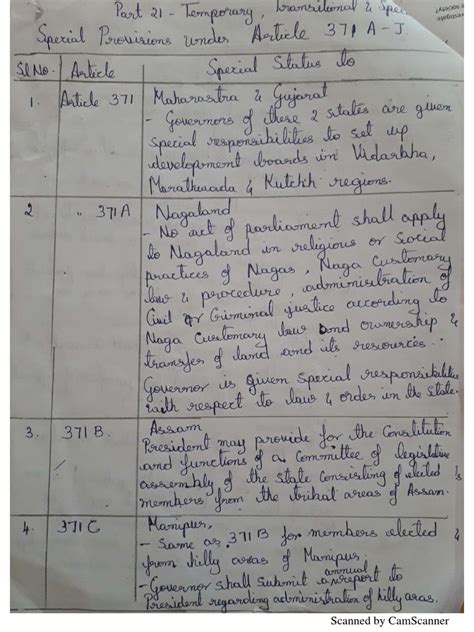 Part 21 - Temporary, Transitional & Spec
Special Provisions under Article 371 A-J.
Sl No. Article Special Status to
1. Article 371 Maharastra & Gujarat
- Governors of these 2 states are given
special responsibilities to set up
development boards in Vidarbha,
Marathwada & Kutchh regions.
2 " 371A Nagaland
- No act of parliament shall apply
to Nagaland in religious or Social
practices of Nagas, Naga Customary
law & procedure, administration of
Civil or Criminal justice according to
Naga Customary law and ownership &
transfer of land and its resources.
Governor is given Special responsibilities
with respect to law & order in the State.
3. 371 B. Assam
President may provide for the Constitution
and functions of a Committee of legislative
assembly of the State Consisting of elected
members from the tribal areas of Assam.
4. 371 C Manipur,
- Same as 371 B for members elected
from hilly areas of Manipur.
annual
- Governor shall Submit a report to
President regarding administration of hilly areas.
Scanned by CamScanner